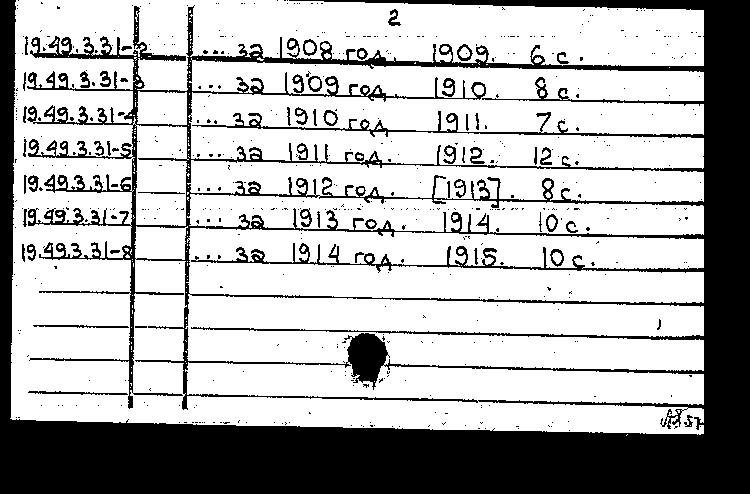 2
19.49.3.31-2 ... за 1908 год. 1909. 6 с.
19.49.3.31-3 ... за 1909 год. 1910. 8 с.
19.49.3.31-4 ... за 1910 год. 1911. 7 с.
19.49.3.31-5 ... за 1911 год. 1912. 12 с.
19.49.3.31-6 ... за 1912 год. [1913]. 8 с.
19.49.3.31-7 ... за 1913 год. 1914. 10 с.
19.49.3.31-8 ... за 1914 год. 1915. 10 с.
57